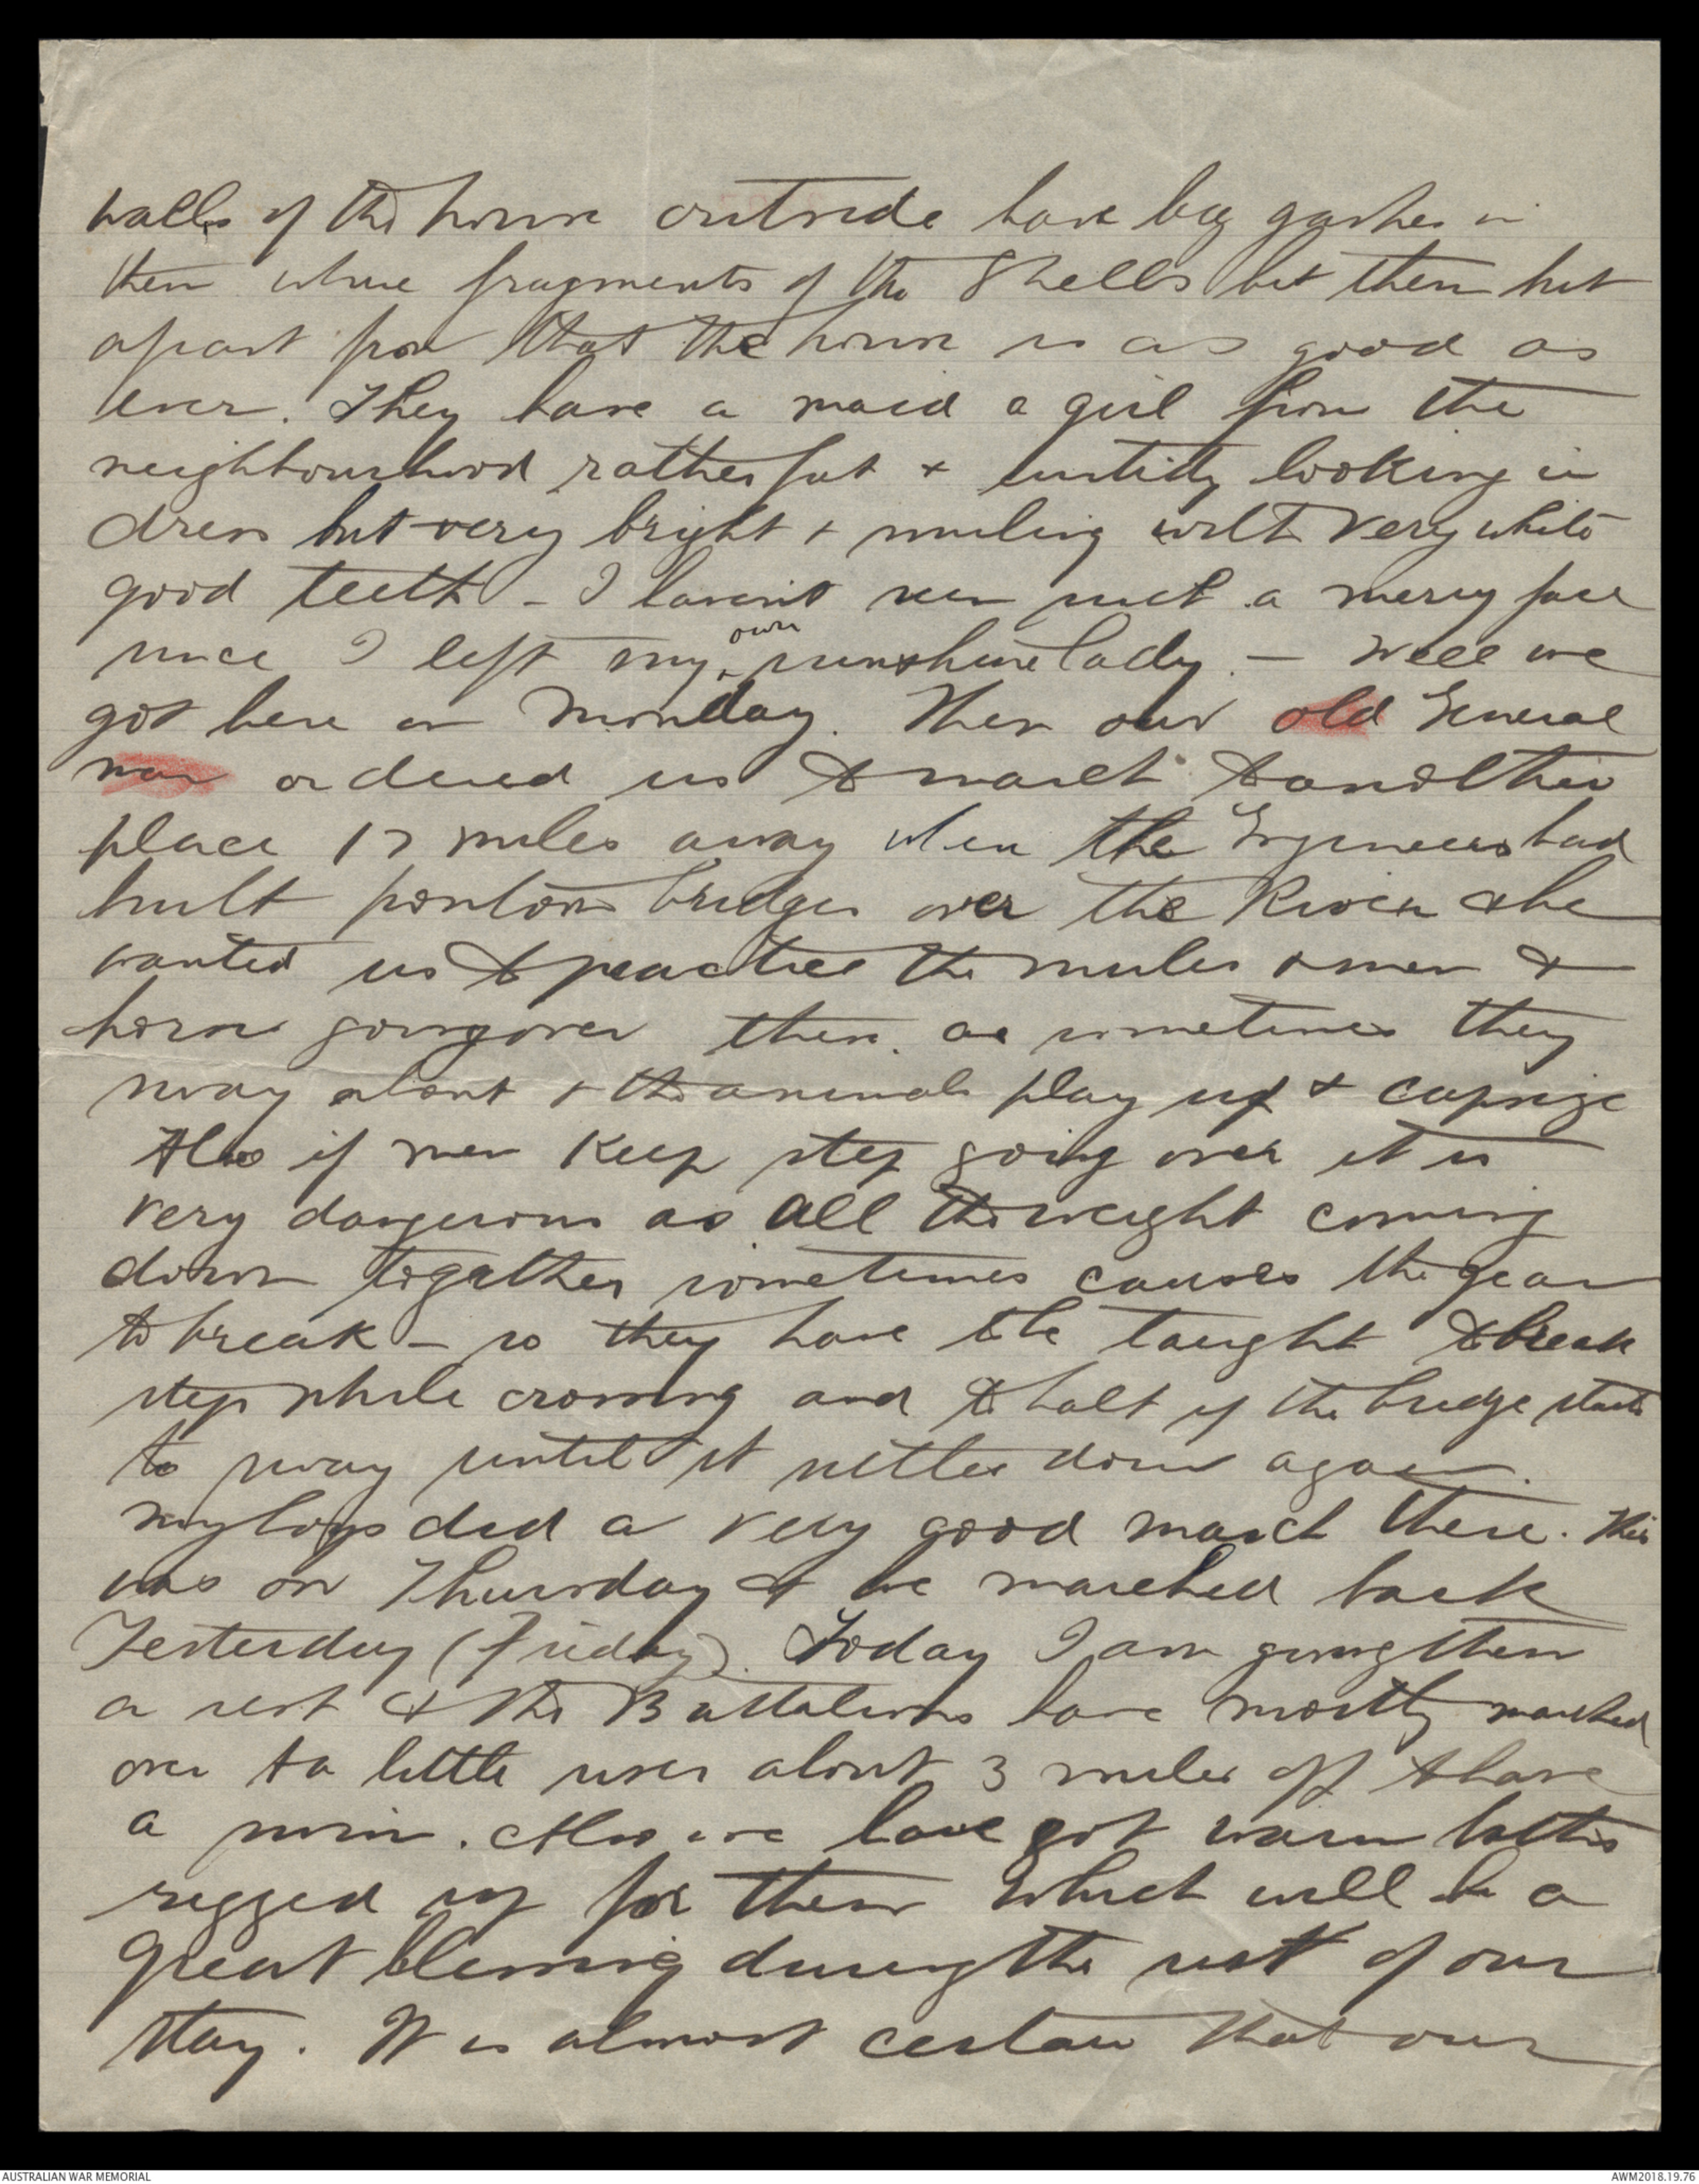 walls of the house outside have big gashes in
them where fragments of the Shells hit them but
apart from that the house is as good as
ever. They have a maid a girl from the
neighbourhood rather fat & untidy looking in
dress but very bright & smiling with very white
good teeth - I haven't seen such a merry face
since I left my own sunshine lady. - Well we
got here on Monday. Then our old General
man ordered us to march to another
place 17 miles away where the Engineers had
built pontoon bridges over the River & he
wanted us to practice the mules & men &
horses going over them as sometimes they
sway about & the animals play up & capsize
Also if men keep step going over it is
very dangerous as all the weight coming
down together sometimes causes the gear
to break - so they have to be taught to break
step while crossing and to halt if the bridge starts
to sway until it settles down again.
My boys did a very good march there. This
was on Thursday & we marched back
Yesterday (Friday). Today I am giving them
a rest & the Battalions have mostly marched
over to a little river about 3 miles off to have
a swim. Also we have got warm baths
rigged up for them which will be a
great blessing during the rest of our
stay. It is almost certain that our
AUSTRALIAN WAR MEMORIAL
AWM2018.19.76